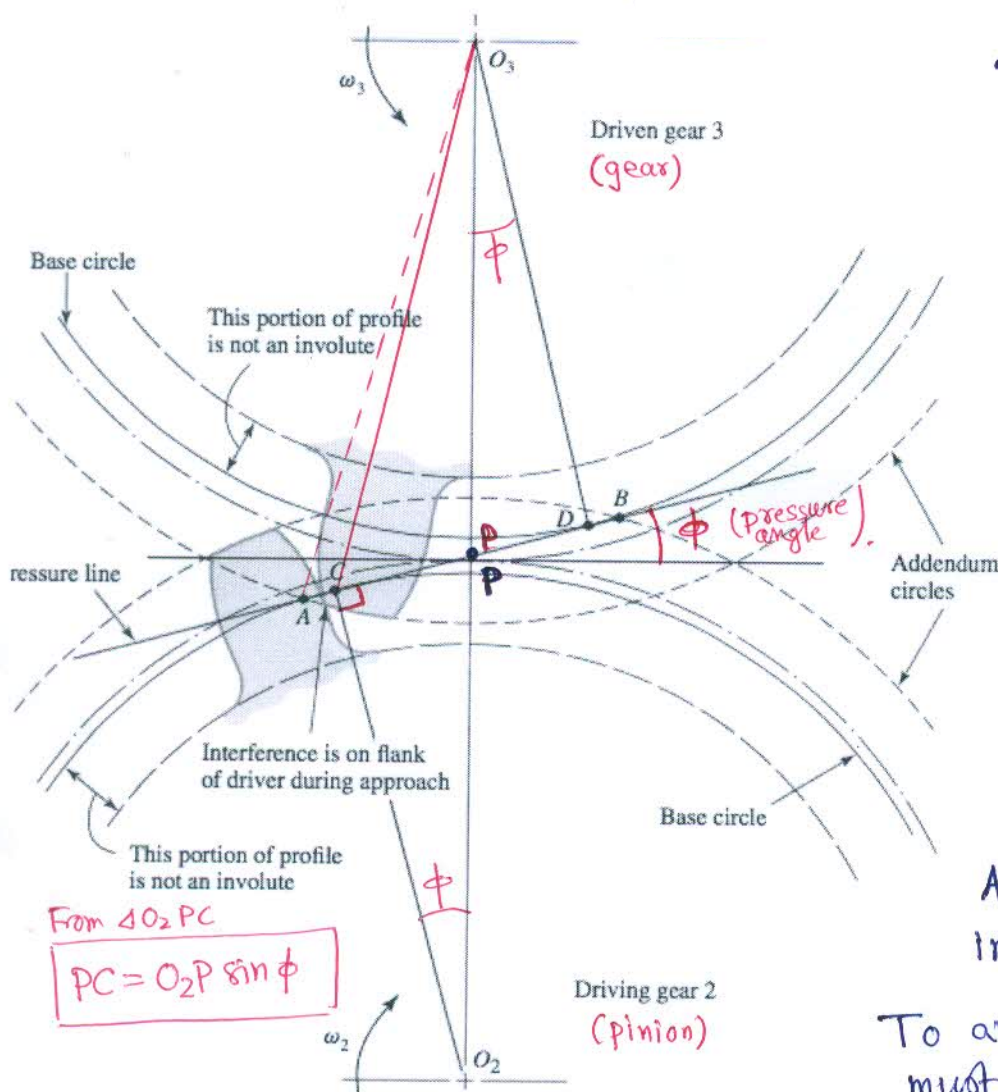 O₃
ω₃
Driven gear 3
(gear)
ϕ
Base circle
This portion of profile
is not an involute
D
B
P
ϕ (pressure
angle).
P
ressure line
Addendum
circles
A
C
Interference is on flank
of driver during approach
Base circle
This portion of profile
is not an involute
ϕ
From ⊿O₂PC
PC = O₂P sin ϕ
Driving gear 2
(pinion)
ω₂
O₂
A
To
must